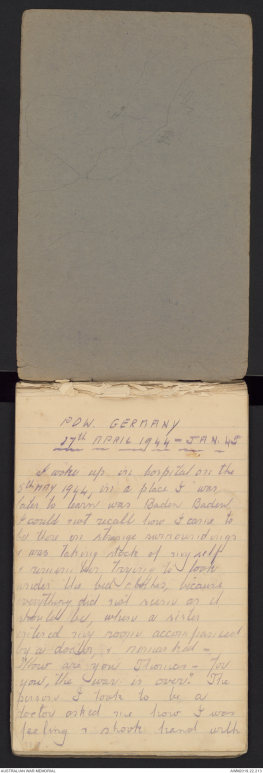 POW. GERMANY
27th APRIL 1944 - JAN. 45
I woke up in hospital on the
5th MAY 1944, in a place I was
later to learn was Baden Baden,
I could not recall how I came to
be there in strange surroundings
I was taking stock of myself
& remember trying to look
under the bed clothes, because
everything did not seem as it
should be, when a sister
entered my room accompanied
by a doctor, & remarked -
"How are you Thomas - for
you, the war is over". The
person I took to be a
doctor asked me how I was
feeling & shook hand with
AUSTRALIAN WAR MEMORIAL